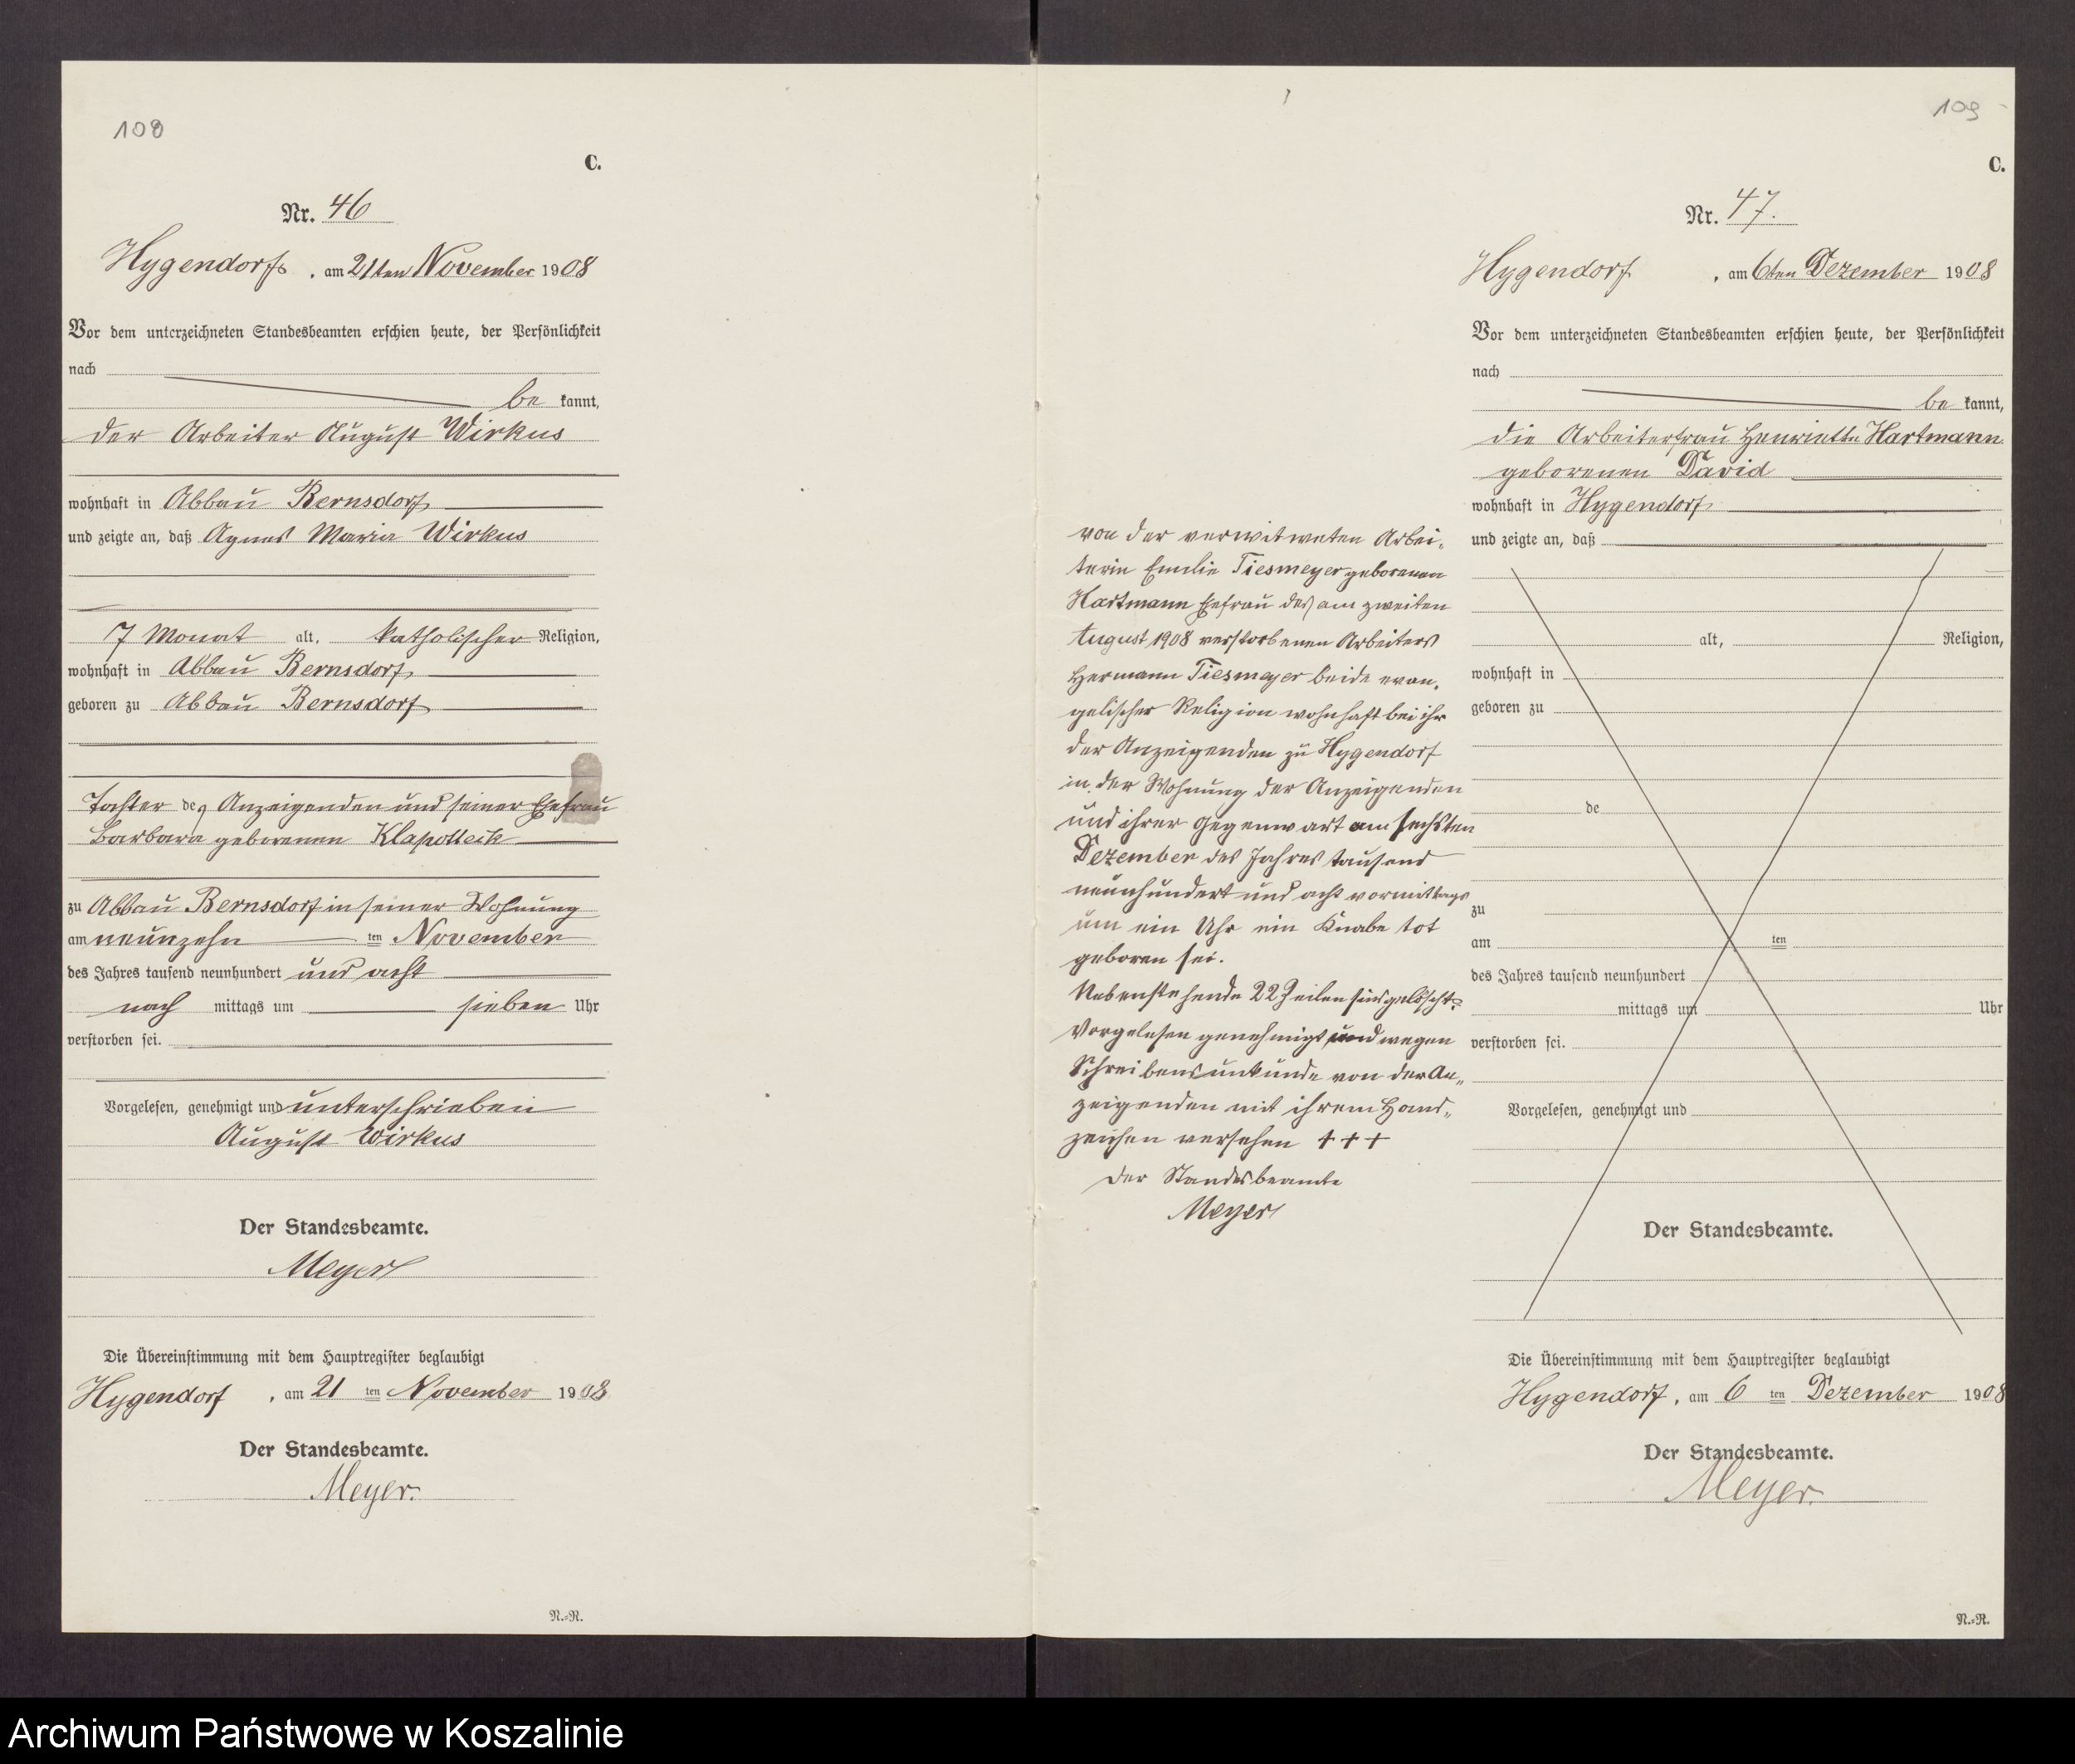 108
C.
Nr. 46
Hygendorf, am 21ten November 1908
Vor dem unterzeichneten Standesbeamten erschien heute, der Persönlichkeit
nach
be kannt,
der Arbeiter August Wirkus
wohnhaft in Abbau Bernsdorf
und zeigte an, daß Agnes Maria Wirkus
7 Monat alt, katholischer Religion,
wohnhaft in Abbau Bernsdorf,
geboren zu Abbau Bernsdorf
Tochter des Anzeigenden und seiner Ehefrau
Barbara geborenen Klapotteck
zu Abbau Bernsdorf in seiner Wohnung
am neunzehn ten November
des Jahres tausend neunhundert und acht
nach mittags um sieben Uhr
verstorben sei.
Vorgelesen, genehmigt und unterschrieben
August Wirkus
Der Standesbeamte.
Meyer
Die Übereinstimmung mit dem Hauptregister beglaubigt
Hygendorf, am 21 ten November 1908
Der Standesbeamte.
Meyer.
N.-R.
109
C.
Nr. 47.
Hygendorf, am 6ten Dezember 1908
Vor dem unterzeichneten Standesbeamten erschien heute, der Persönlichkeit
nach
be kannt,
die Arbeiterfrau Henriette Hartmann
geborenen David
wohnhaft in Hygendorf
und zeigte an, daß
alt, Religion,
wohnhaft in
geboren zu
de
zu
am ten
des Jahres tausend neunhundert
mittags um Uhr
verstorben sei.
Vorgelesen, genehmigt und
Der Standesbeamte.
von der verwitweten Arbei-
terin Emilie Tiesmeyer geborenen
Hartmann Ehefrau des am zweiten
August 1908 verstorbenen Arbeiters
Hermann Tiesmeyer beide evan-
gelischer Religion wohnhaft bei ihr
der Anzeigenden zu Hygendorf
in der Wohnung der Anzeigenden
und ihrer Gegenwart am sechsten
Dezember des Jahres tausend
neunhundert und acht vormittags
um ein Uhr ein Knabe tot
geboren sei.
Nebenstehende 22 Zeilen sind gelöscht.
Vorgelesen genehmigt und wegen
Schreibensunkunde von der An-
zeigenden mit ihrem Hand-
zeichen versehen +++
Der Standesbeamte
Meyer
Die Übereinstimmung mit dem Hauptregister beglaubigt
Hygendorf, am 6 ten Dezember 1908
Der Standesbeamte.
Meyer.
N.-R.
Archiwum Państwowe w Koszalinie